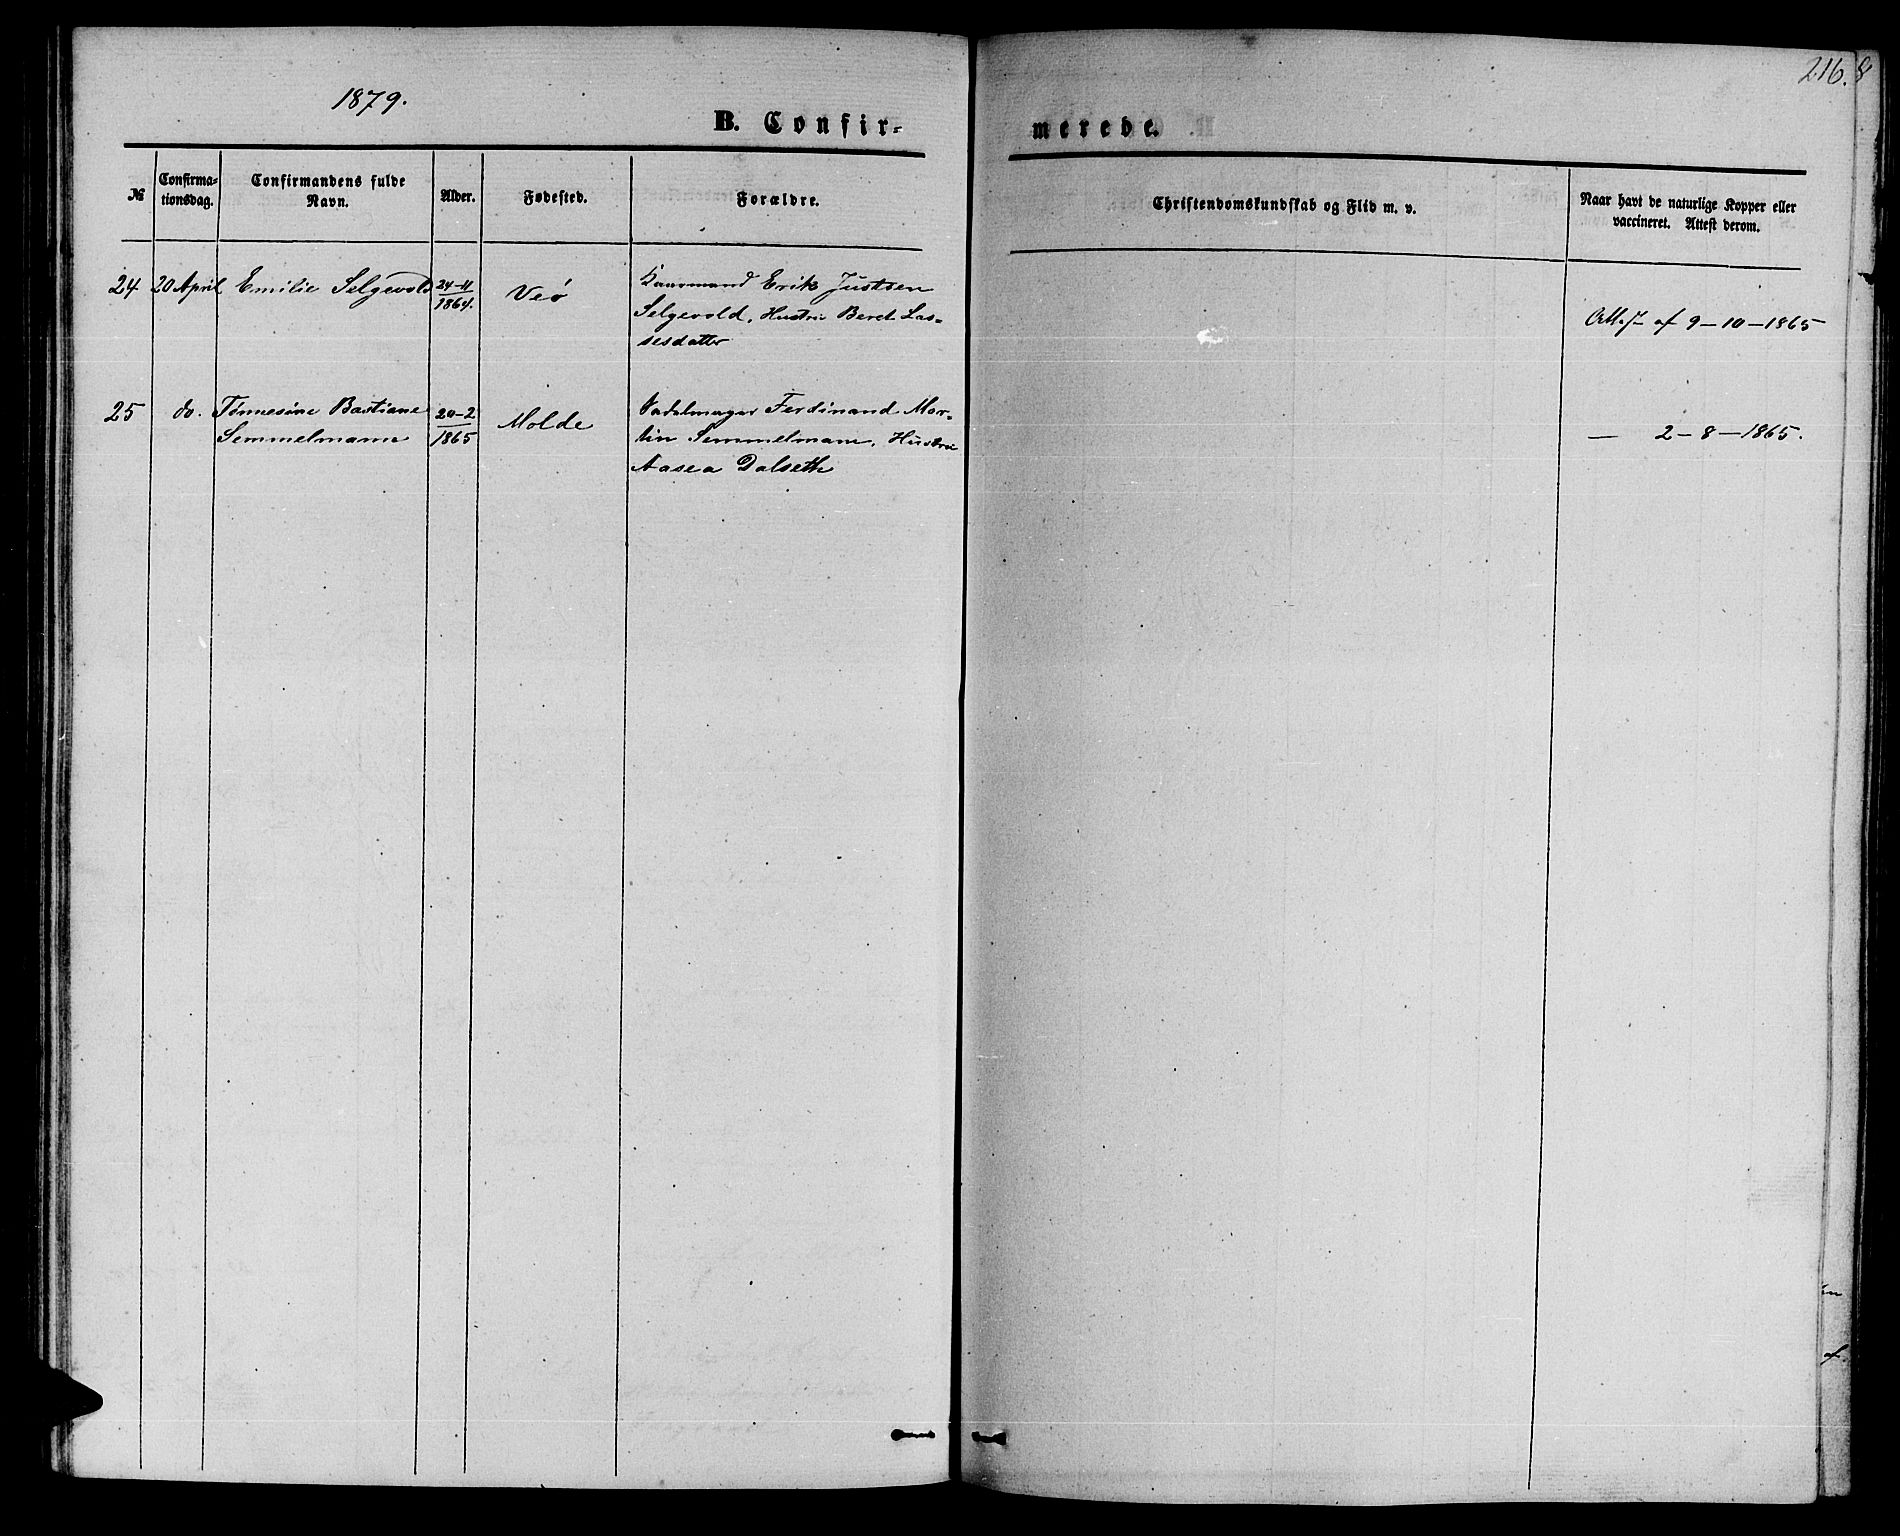 1879.
216.
B. Confir-
merede.
№
Confirma-
tionsdag.
Confirmandens fulde
Navn.
Alder.
Fødested.
Forældre.
Christendomskundskab og Flid m. v.
Naar havt de naturlige Kopper eller
vaccineret. Attest derom.
24 20 April Emilie Selgevold 24-11 1864. Veø Kaarmand Erik Justsen
Selgevold, Hustru Beret Las-
sesdatter
Attest af 9-10-1865
25 do. Tønnesine Bastiane 20-2 Molde Sadelmager Ferdinand Mar-
Semmelmann 1865 tin Semmelmann, Hustru
Aasea Dalseth
— 2-8-1865.